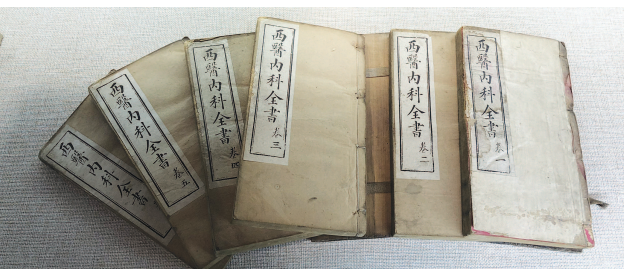 西醫內科全書 卷
西醫內科全書 卷二
西醫內科全書 卷三
西醫內科全書 卷四
西醫內科全書 卷五
西醫內科全書